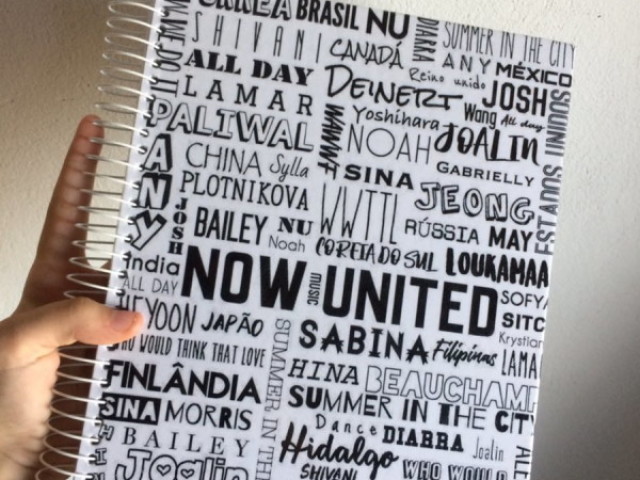 BRASIL NU
SHIVANI
DIARRA
SUMMER IN THE CITY
CANADÁ
ANY MÉXICO
ALL DAY
Reino unido
DEINERT JOSH
LAMAR
Yoshihara Wang All day
PALIWAL
NOAH JOALIN
CHINA Sylla
SINA GABRIELLY
ANY
PLOTNIKOVA
WWTTL JEONG
JOSH
BAILEY NU
RÚSSIA MAY
Noah COREIA DO SUL LOUKAMAA
India
NOW UNITED
music
ALL DAY
SOFYA
HEYOON JAPÃO
SABINA Filipinas
SITC
Krystian
WHO WOULD THINK THAT LOVE
LAMA
FINLÂNDIA
SUMMER IN THE
HINA BEAUCHAMP
SINA MORRIS
SUMMER IN THE CITY
Dance DIARRA Joalin
BAILEY
Hidalgo
Joalin
SHIVANI WHO WOULD